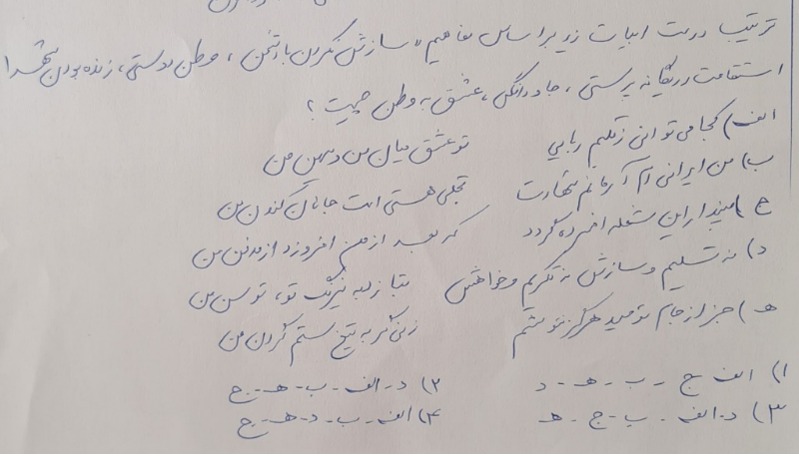 ترتیب درست ابیات زیر براساس مفاهیم «سازش نکردن با دشمن، وطن دوستی، زنده بودن شهدا
استقامت در یگانه پرستی، جاودانگی عشق به وطن چیست؟
الف) کجا می توانی ز قلبم ربایی تو عشق میان من و میهن من
ب) من ایرانی ام آرمانم شهادت تجلی هستی است جان کندن من
ج) مپندار این شعله افسرده گردد که بعد از من افروزد از مدفن من
د) نه تسلیم و سازش نه تکریم و خواهش بتازد به نیرنگ تو، توسن من
هـ) جز از جام توحید هرگز ننوشم زنی گر به تیغ ستم گردن من
۱) الف - ج - ب - هـ - د ۲) د - الف - ب - هـ - ج
۳) د - الف - ب - ج - هـ ۴) الف - ب - د - هـ - ج